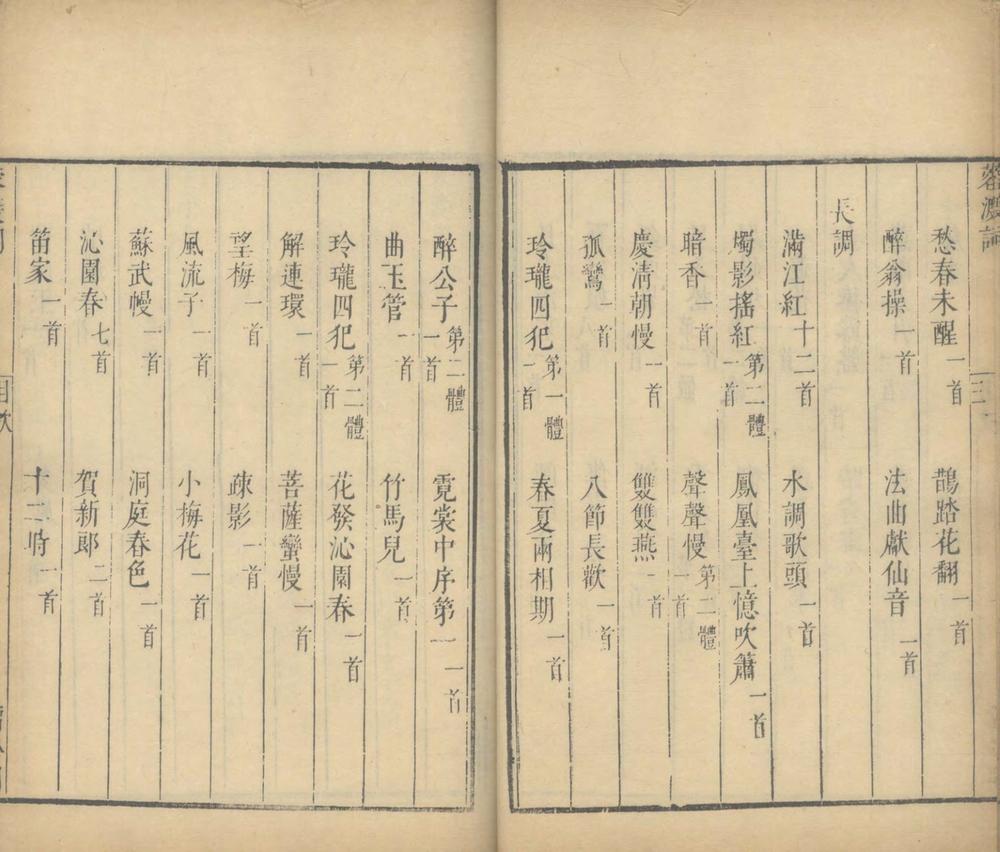 蓉渡詞
三
愁春未醒 一首 鵲踏花翻 一首
醉翁操 一首 法曲獻仙音 一首
長調
滿江紅 十二首 水調歌頭 一首
燭影搖紅 第二體 一首 鳳凰臺上憶吹簫 一首
暗香 一首 聲聲慢 第二體 一首
慶清朝慢 一首 雙雙燕 一首
孤鸞 一首 八節長歡 一首
玲瓏四犯 第一體 一首 春夏兩相期 一首
醉公子 第二體 一首 霓裳中序第一 一首
曲玉管 一首 竹馬兒 一首
玲瓏四犯 第二體 一首 花發沁園春 一首
解連環 一首 菩薩蠻慢 一首
望梅 一首 疎影 一首
風流子 一首 小梅花 一首
蘇武幔 一首 洞庭春色 一首
沁園春 七首 賀新郎 二首
笛家 一首 十二時 一首
目次